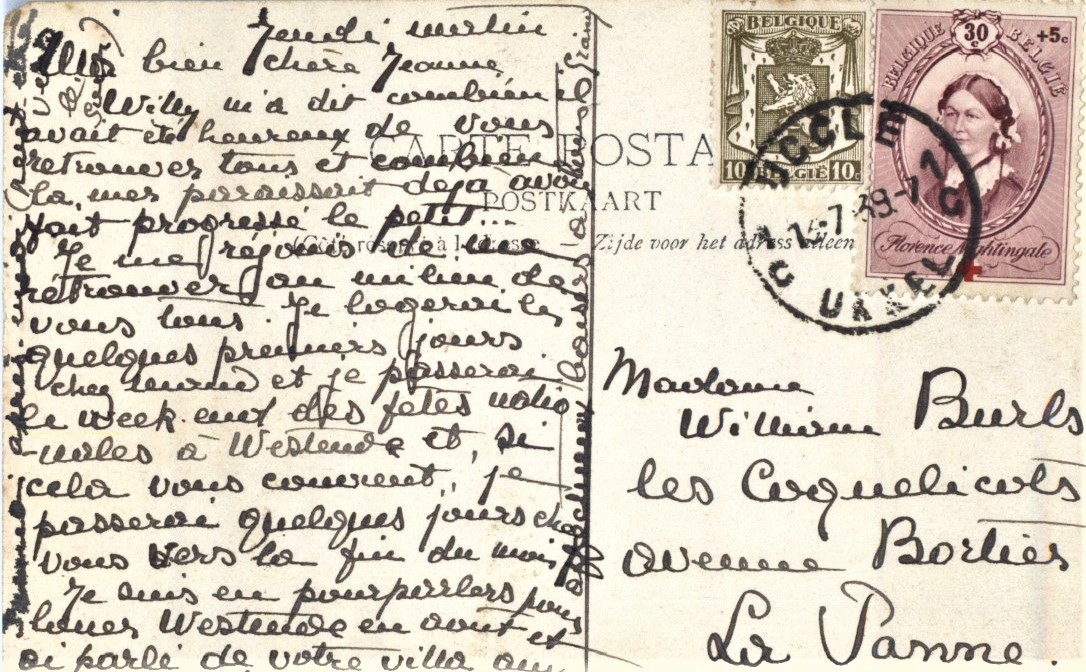 Jeudi matin
bien chère Jeanne
Willy m'a dit combien il
avait été heureux de vous
retrouver tous et combien
la mer paraissait déjà avoir
fait progressé le petit...
Je me réjouis de me
retrouver au milieu de
vous tous. Je logerai les
quelques premiers jours
chez et je passerai
le week-end des fêtes natio
-nales à Westende et, si
cela vous convient, je
passerai quelques jours chez
vous vers la fin du mois.
Je suis en pourparlers pour
louer Westende en août et
ai parlé de votre villa au
affectueux baisers
CARTE POSTA
POSTKAART
Côté réservé à l'adresse — Zijde voor het adress alleen
BELGIQUE
10c BELGIË 10c
BELGIQUE BELGIE
30c +5c
Florence Nightingale
UCCLE 1
14-7 39-7
C UKKEL 1 C
Madame
William Burls
les Coquelicots
avenue Bortier
La Panne.